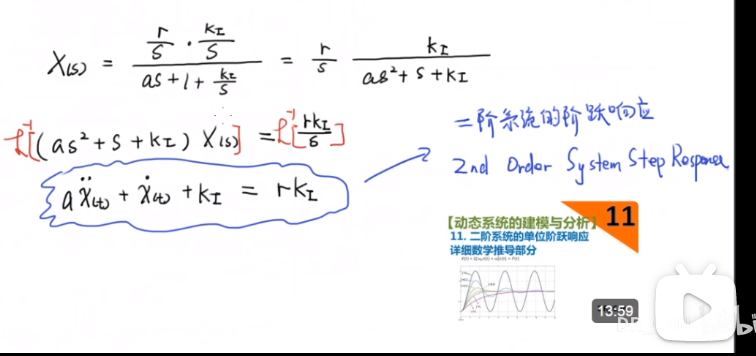 X(s) = (r/s · k_I/s) / (as + 1 + k_I/s) = r/s k_I / (as² + s + k_I)
ℒ⁻¹[(as² + s + k_I) X(s)] = ℒ⁻¹[rk_I/s]
aẍ(t) + ẋ(t) + k_I = rk_I
二阶系统的阶跃响应
2nd Order System Step Response
【动态系统的建模与分析】11
11. 二阶系统的单位阶跃响应
详细数学推导部分
13:59